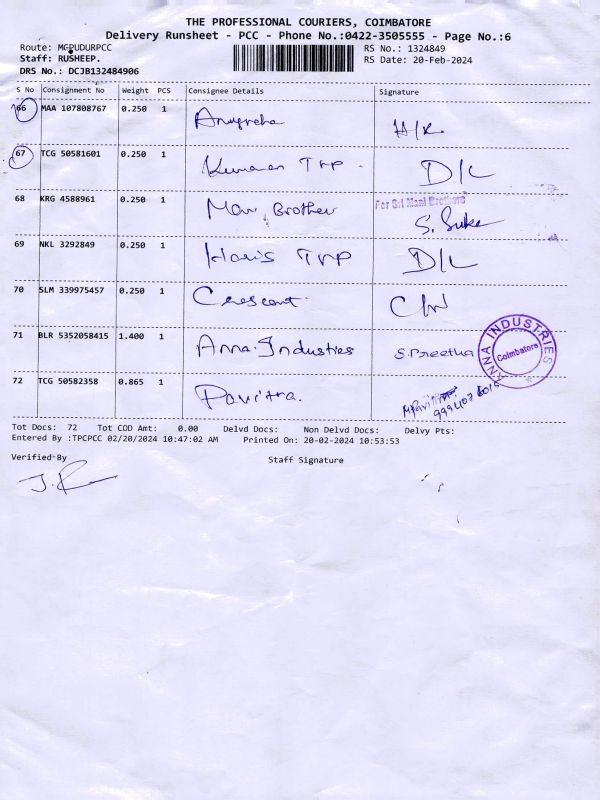 THE PROFESSIONAL COURIERS, COIMBATORE
Delivery Runsheet - PCC - Phone No.:0422-3505555 - Page No.:6
Route: MGPUDURPCC RS No.: 1324849
Staff: RUSHEEP. RS Date: 20-Feb-2024
DRS No.: DCJB132484906
S No Consignment No Weight PCS Consignee Details Signature
66 MAA 107808767 0.250 1
67 TCG 50581601 0.250 1 Kumaran TRP. D/L
68 KRG 4588961 0.250 1 Mani Brother For Sri Mani Brothers
69 NKL 3292849 0.250 1 Haris TRP D/L
70 SLM 339975457 0.250 1 Crescent.
71 BLR 5352058415 1.400 1 Anna Industries S.Preetha ANNA INDUSTRIES Coimbatore
72 TCG 50582358 0.865 1 Pavitra.
Tot Docs: 72 Tot COD Amt: 0.00 Delvd Docs: Non Delvd Docs: Delvy Pts:
Entered By :TPCPCC 02/20/2024 10:47:02 AM Printed On: 20-02-2024 10:53:53
Verified By Staff Signature